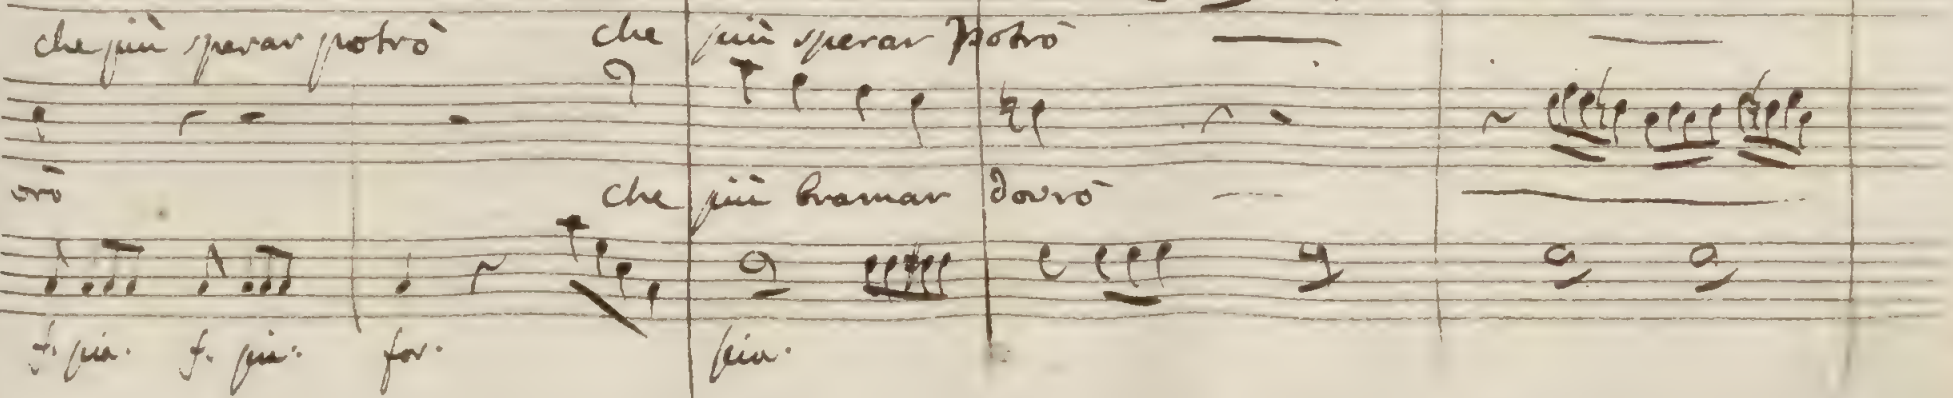 che più sperar potrò che più sperar potrò
orò che più bramar dovrò
f. pia. f. pia: for. pia.